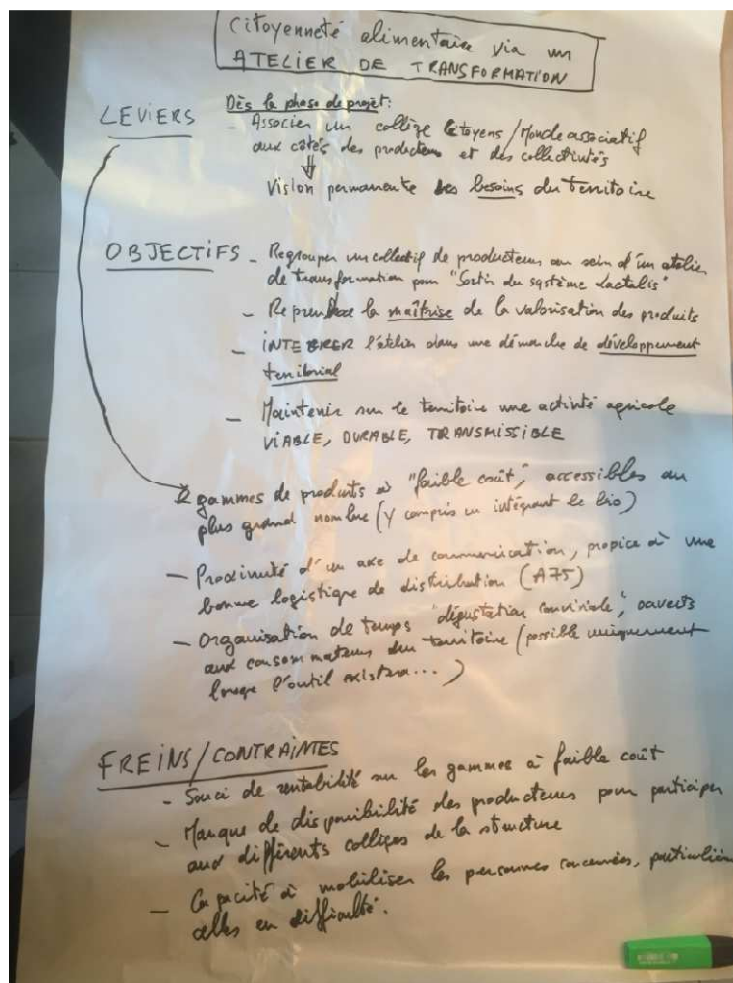 Citoyenneté alimentaire via un
ATELIER DE TRANSFORMATION
LEVIERS
Dès la phase de projet:
- Associer un collège Citoyens / Monde associatif
aux côtés des producteurs et des collectivités
⇓
Vision permanente des besoins du territoire
OBJECTIFS - Regrouper un collectif de producteurs au sein d'un atelier
de transformation pour "Sortir du système Lactalis"
- Reprendre la maîtrise de la valorisation des produits
- INTEGRER l'atelier dans une démarche de développement
territorial
- Maintenir sur le territoire une activité agricole
VIABLE, DURABLE, TRANSMISSIBLE
gammes de produits à "faible coût", accessibles au
plus grand nombre (y compris en intégrant le bio)
- Proximité d'un axe de communication, propice à une
bonne logistique de distribution (A75)
- Organisation de temps "dégustation conviviale", ouverts
aux consommateurs du territoire (possible uniquement
lorsque l'outil existera...)
FREINS/CONTRAINTES
- Souci de rentabilité sur les gammes à faible coût
- Manque de disponibilité des producteurs pour participer
aux différents collèges de la structure
- Capacité à mobiliser les personnes concernées, particulièr
celles en difficulté.